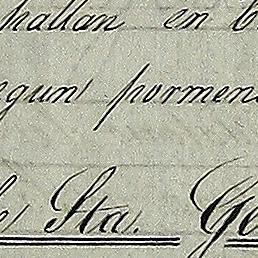 hallan en b
egun pormeno
e Sta. Ge